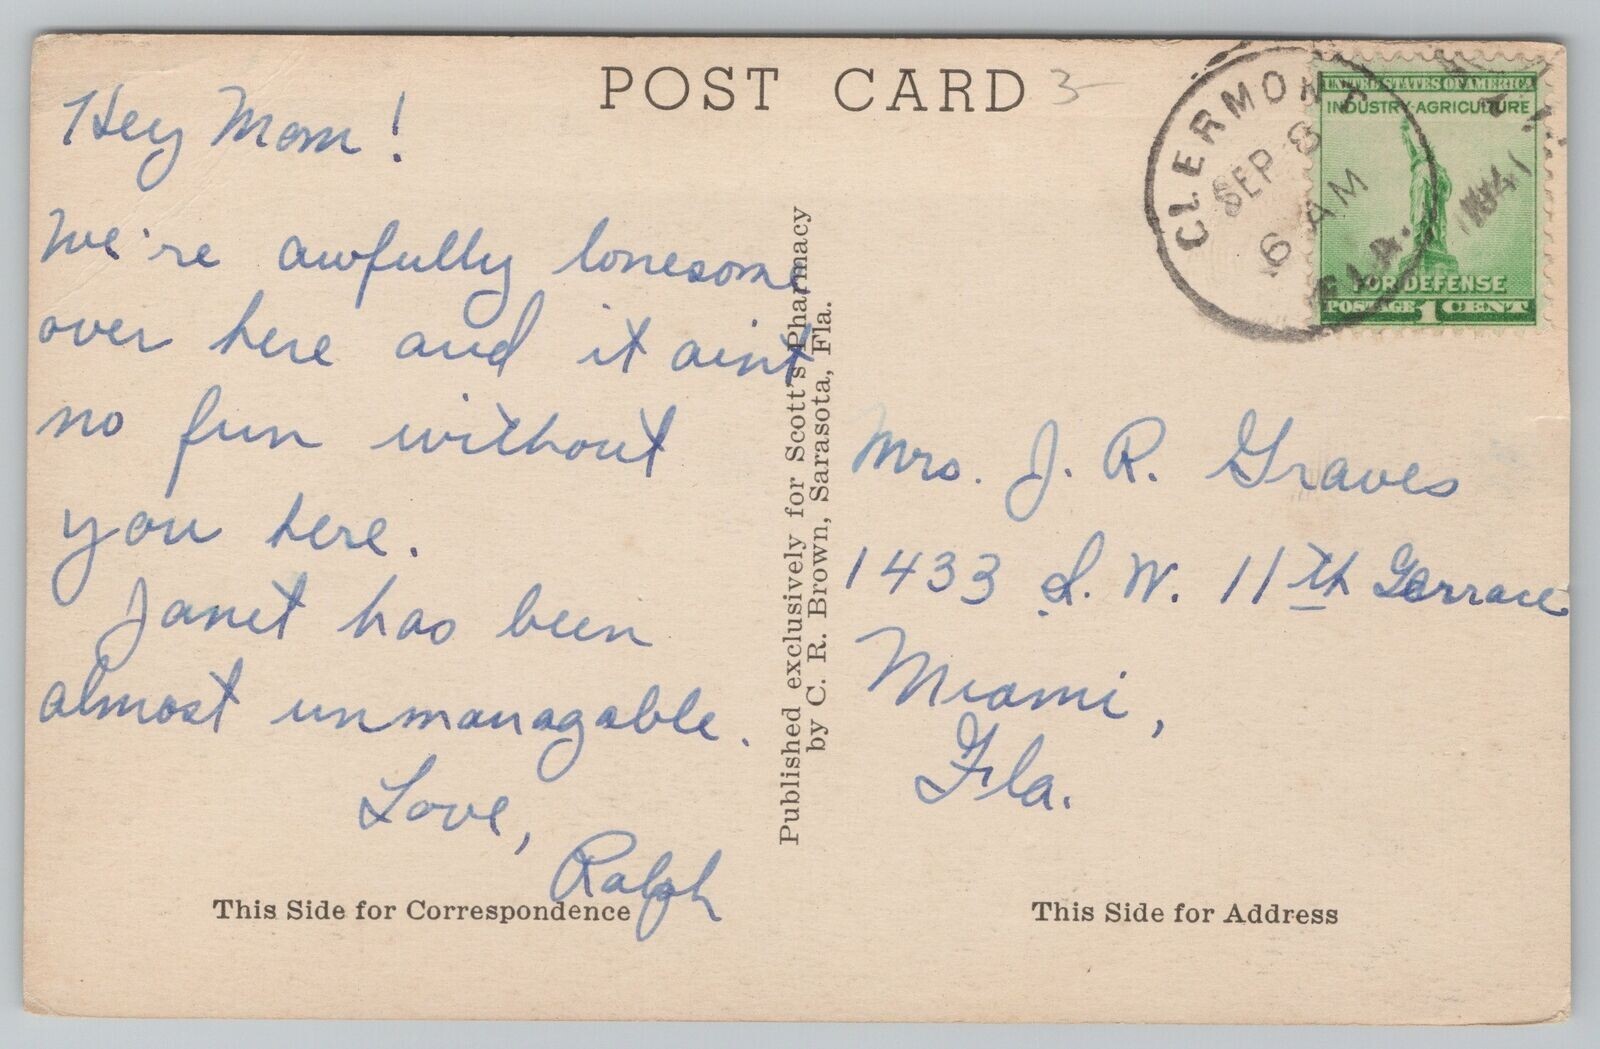 POST CARD 3-
Hey Mom!
We're awfully lonesome
over here and it aint
no fun without
you here.
Janet has been
almost unmanagable.
Love,
Ralph
This Side for Correspondence
Published exclusively for Scott's Pharmacy
by C. R. Brown, Sarasota, Fla.
CLERMONT
SEP 8
6 AM
FLA.
1941
UNITED STATES OF AMERICA
INDUSTRY·AGRICULTURE
FOR DEFENSE
POSTAGE 1 CENT
Mrs. J. R. Graves
1433 S. W. 11th Terrace
Miami,
Fla.
This Side for Address